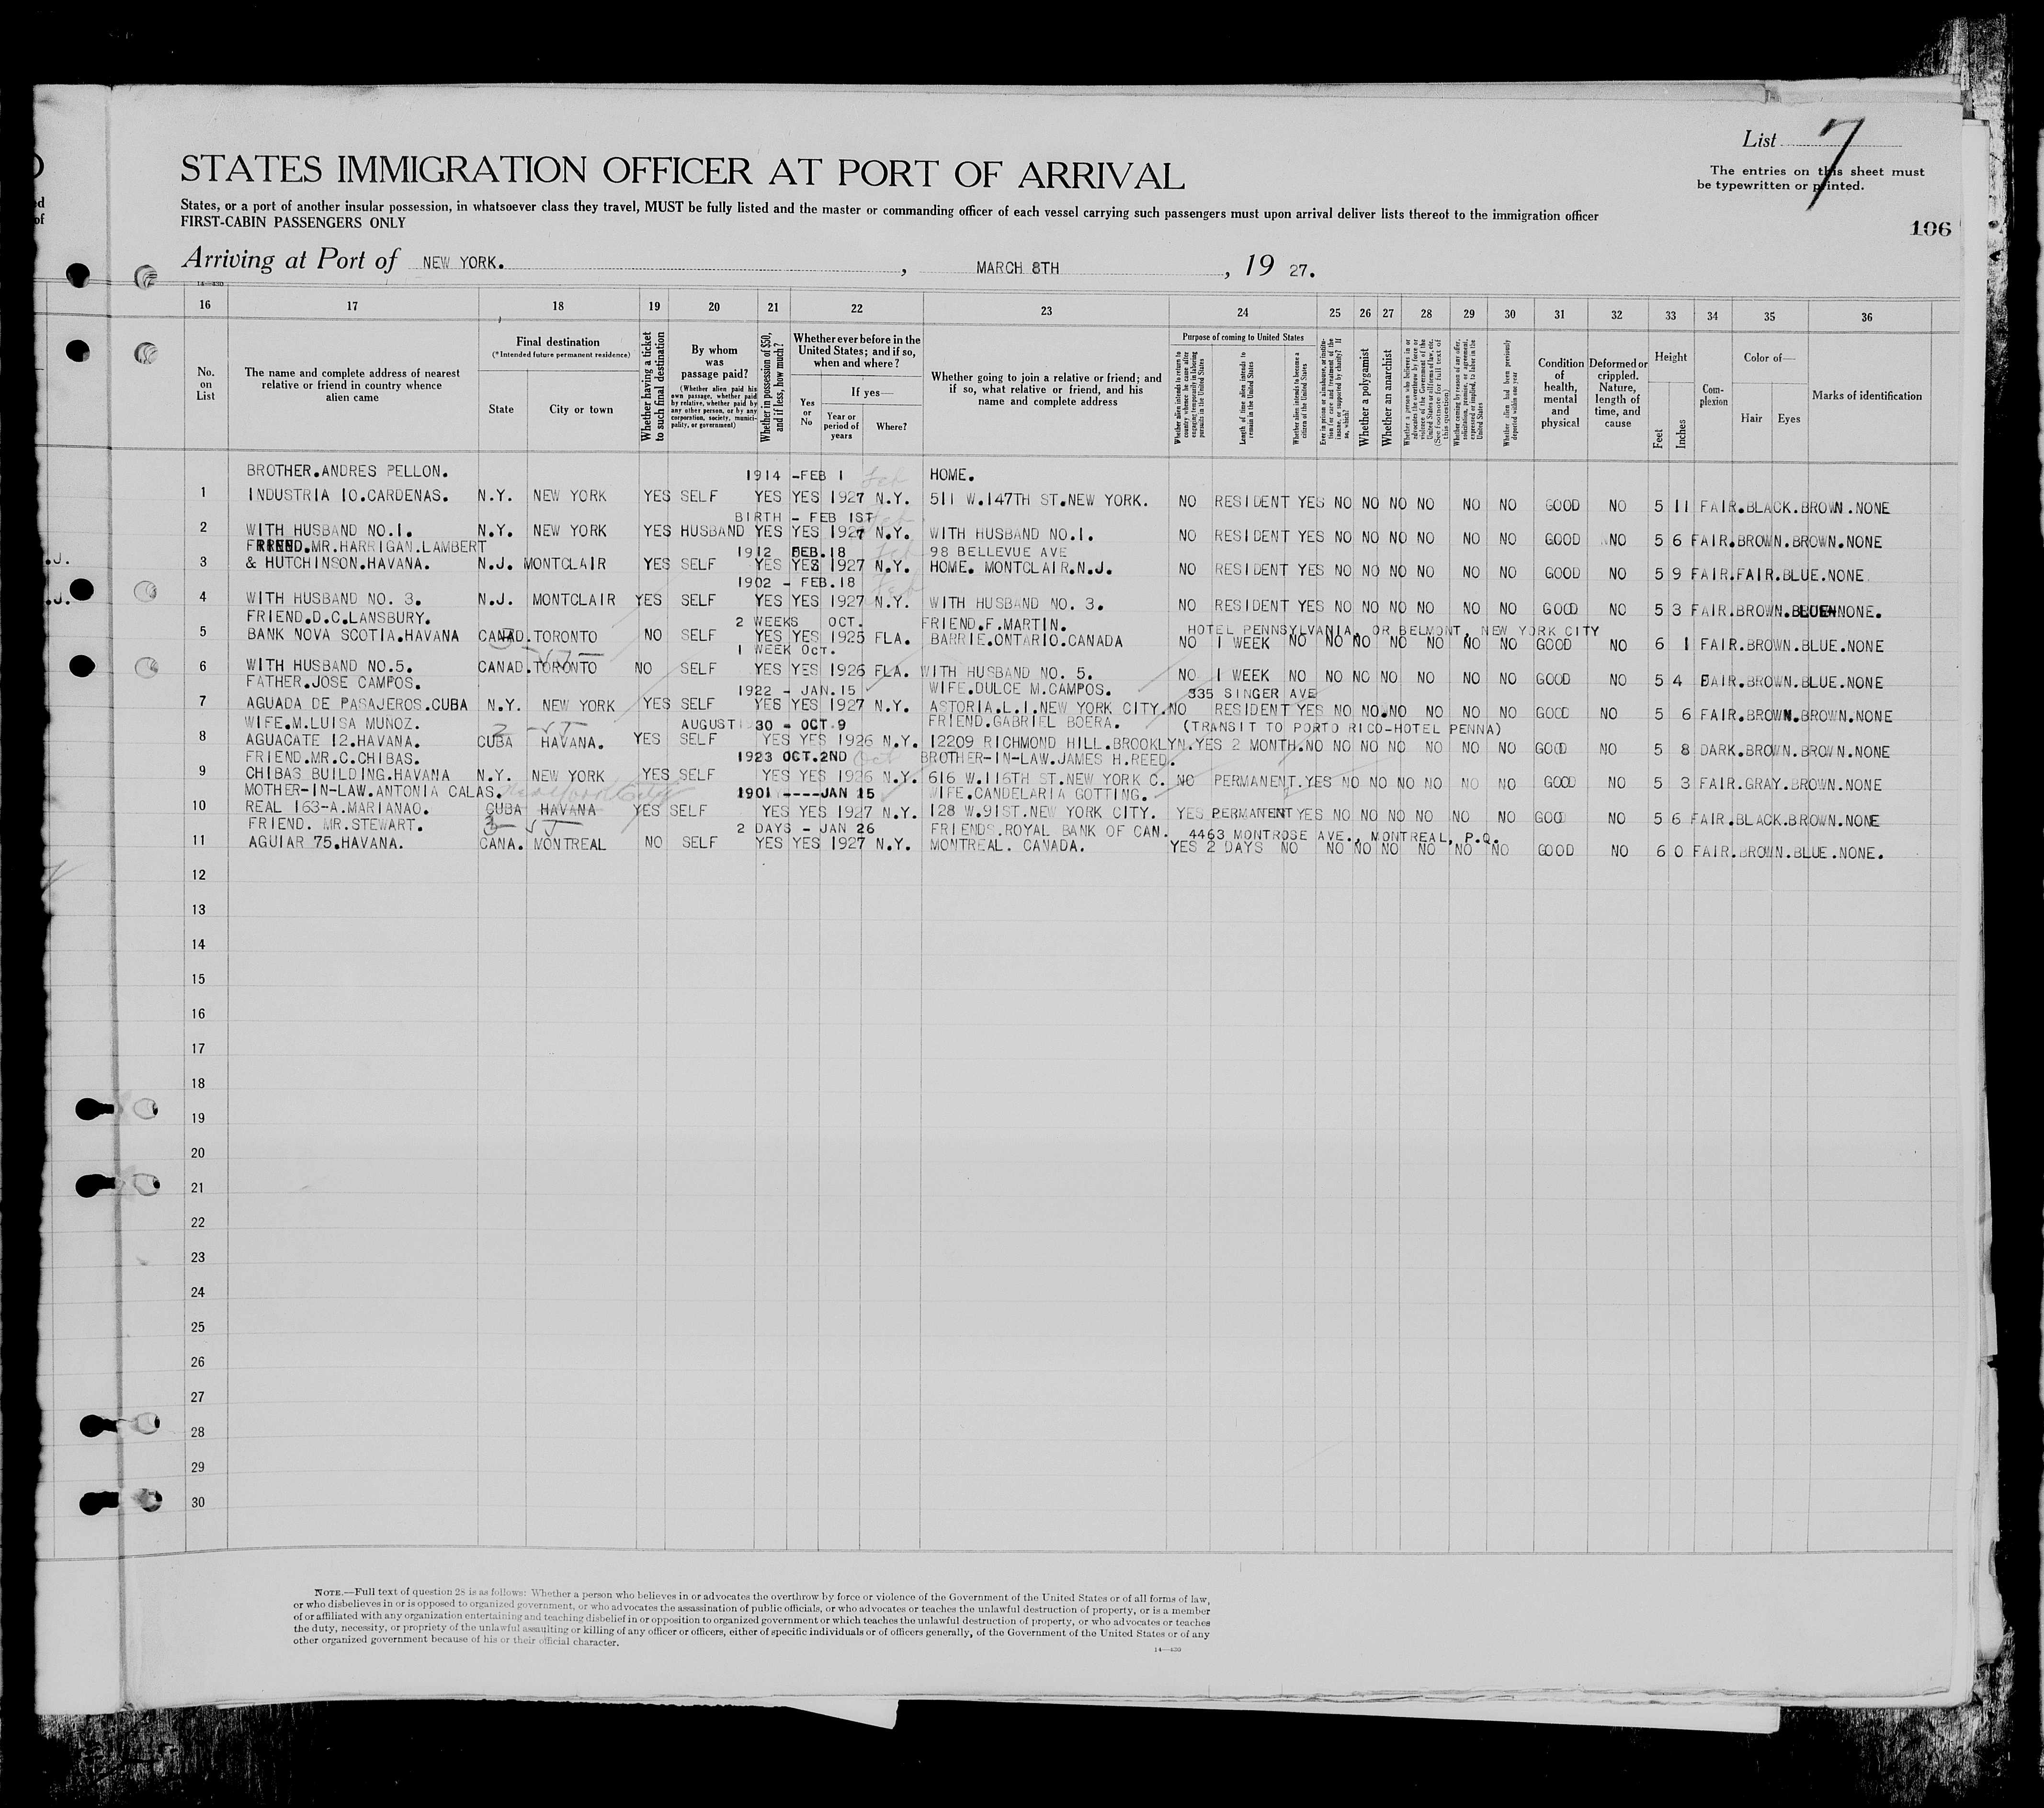 List 7
The entries on this sheet must
be typewritten or printed.
STATES IMMIGRATION OFFICER AT PORT OF ARRIVAL
States, or a port of another insular possession, in whatsoever class they travel, MUST be fully listed and the master or commanding officer of each vessel carrying such passengers must upon arrival deliver lists thereof to the immigration officer
FIRST-CABIN PASSENGERS ONLY
106
Arriving at Port of NEW YORK. , MARCH 8TH , 19 27.
14—430
16 17 18 19 20 21 22 23 24 25 26 27 28 29 30 31 32 33 34 35 36
No. on List
The name and complete address of nearest relative or friend in country whence alien came
Final destination
(*Intended future permanent residence)
State City or town
Whether having a ticket to such final destination
By whom was passage paid?
(Whether alien paid his own passage, whether paid by relative, whether paid by any other person, or by any corporation, society, municipality, or government)
Whether in possession of $50, and if less, how much?
Whether ever before in the United States; and if so, when and where?
If yes—
Yes or No
Year or period of years
Where?
Whether going to join a relative or friend; and if so, what relative or friend, and his name and complete address
Purpose of coming to United States
Whether alien intends to return to country whence he came after engaging temporarily in laboring pursuits in the United States
Length of time alien intends to remain in the United States
Whether alien intends to become a citizen of the United States
Ever in prison or almshouse, or institution for care and treatment of the insane, or supported by charity? If so, which?
Whether a polygamist
Whether an anarchist
Whether a person who believes in or advocates the overthrow by force or violence of the Government of the United States or all forms of law, etc. (See footnote for full text of this question)
Whether coming by reason of any offer, solicitation, promise, or agreement, expressed or implied, to labor in the United States
Whether alien had been previously deported within one year
Condition of health, mental and physical
Deformed or crippled. Nature, length of time, and cause
Height
Feet Inches
Complexion
Color of—
Hair Eyes
Marks of identification
BROTHER.ANDRES PELLON. 1914 -FEB 1 Feb HOME.
1 INDUSTRIA 10.CARDENAS. N.Y. NEW YORK YES SELF YES YES 1927 N.Y. 511 W.147TH ST.NEW YORK. NO RESIDENT YES NO NO NO NO NO NO GOOD NO 5 11 FAIR.BLACK.BROWN.NONE
BIRTH - FEB 1ST
2 WITH HUSBAND NO.1. N.Y. NEW YORK YES HUSBAND YES YES 1927 N.Y. WITH HUSBAND NO.1. NO RESIDENT YES NO NO NO NO NO NO GOOD NO 5 6 FAIR.BROWN.BROWN.NONE
FRIEND.MR.HARRIGAN.LAMBERT 1912 FEB.18 Feb 98 BELLEVUE AVE
3 & HUTCHINSON.HAVANA. N.J. MONTCLAIR YES SELF YES YES 1927 N.Y. HOME. MONTCLAIR.N.J. NO RESIDENT YES NO NO NO NO NO NO GOOD NO 5 9 FAIR.FAIR.BLUE.NONE
1902 - FEB.18 Feb
4 WITH HUSBAND NO. 3. N.J. MONTCLAIR YES SELF YES YES 1927 N.Y. WITH HUSBAND NO. 3. NO RESIDENT YES NO NO NO NO NO NO GOOD NO 5 3 FAIR.BROWN.BLUE NONE.
FRIEND.D.C.LANSBURY. 2 WEEKS OCT. FRIEND.F.MARTIN. HOTEL PENNSYLVANIA, OR BELMONT, NEW YORK CITY
5 BANK NOVA SCOTIA.HAVANA CANAD.TORONTO NO SELF YES YES 1925 FLA. BARRIE.ONTARIO.CANADA NO 1 WEEK NO NO NO NO NO NO NO GOOD NO 6 1 FAIR.BROWN.BLUE.NONE
1 WEEK OCT.
6 WITH HUSBAND NO.5. CANAD.TORONTO NO SELF YES YES 1926 FLA. WITH HUSBAND NO. 5. NO 1 WEEK NO NO NO NO NO NO NO GOOD NO 5 4 FAIR.BROWN.BLUE.NONE
FATHER.JOSE CAMPOS. 1922 - JAN.15 WIFE.DULCE M.CAMPOS. 335 SINGER AVE
7 AGUADA DE PASAJEROS.CUBA N.Y. NEW YORK YES SELF YES YES 1927 N.Y. ASTORIA.L.I.NEW YORK CITY. NO RESIDENT YES NO NO.NO NO NO NO GOOD NO 5 6 FAIR.BROWN.BROWN.NONE
WIFE.M.LUISA MUNOZ. AUGUST 30 - OCT.9 FRIEND.GABRIEL BOERA. (TRANSIT TO PORTO RICO-HOTEL PENNA)
8 AGUACATE 12.HAVANA. CUBA HAVANA. YES SELF YES YES 1926 N.Y. 12209 RICHMOND HILL.BROOKLYN. YES 2 MONTH.NO NO NO NO NO NO NO GOOD NO 5 8 DARK.BROWN.BROWN.NONE
FRIEND.MR.C.CHIBAS. 1923 OCT.2ND Oct BROTHER-IN-LAW.JAMES H.REED.
9 CHIBAS BUILDING.HAVANA N.Y. NEW YORK YES SELF YES YES 1926 N.Y. 616 W.116TH ST.NEW YORK C. NO PERMANENT.YES NO NO NO NO NO NO GOOD NO 5 3 FAIR.GRAY.BROWN.NONE
MOTHER-IN-LAW.ANTONIA CALAS. 1901 ----JAN 15 WIFE.CANDELARIA GOTTING.
10 REAL 163-A.MARIANAO. CUBA HAVANA YES SELF YES YES 1927 N.Y. 128 W.91ST.NEW YORK CITY. YES PERMANENT YES NO NO NO NO NO NO GOOD NO 5 6 FAIR.BLACK.BROWN.NONE
FRIEND. MR.STEWART. 2 DAYS - JAN 26 FRIENDS.ROYAL BANK OF CAN. 4463 MONTROSE AVE., MONTREAL, P.Q.
11 AGUIAR 75.HAVANA. CANA. MONTREAL NO SELF YES YES 1927 N.Y. MONTREAL. CANADA. YES 2 DAYS NO NO NO NO NO NO NO GOOD NO 6 0 FAIR.BROWN.BLUE.NONE.
12
13
14
15
16
17
18
19
20
21
22
23
24
25
26
27
28
29
30
NOTE.—Full text of question 28 is as follows: Whether a person who believes in or advocates the overthrow by force or violence of the Government of the United States or of all forms of law,
or who disbelieves in or is opposed to organized government, or who advocates the assassination of public officials, or who advocates or teaches the unlawful destruction of property, or is a member
of or affiliated with any organization entertaining and teaching disbelief in or opposition to organized government or which teaches the unlawful destruction of property, or who advocates or teaches
the duty, necessity, or propriety of the unlawful assaulting or killing of any officer or officers, either of specific individuals or of officers generally, of the Government of the United States or of any
other organized government because of his or their official character.
14—430